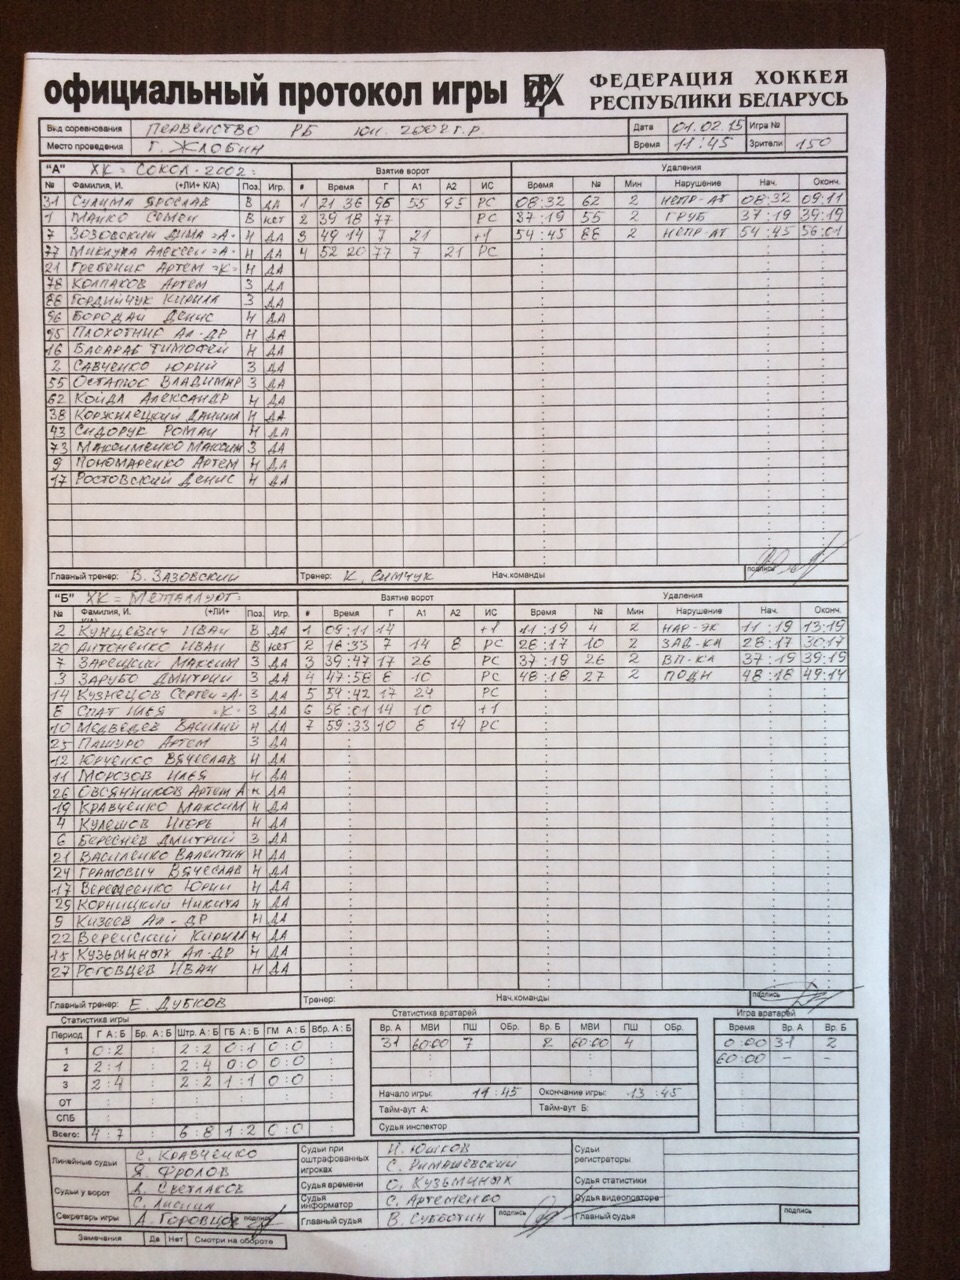 официальный протокол игры ФЕДЕРАЦИЯ ХОККЕЯ
РЕСПУБЛИКИ БЕЛАРУСЬ
Вид соревнования ПЕРВЕНСТВО РБ ЮН. 2002 Г.Р. Дата 01.02.15 Игра №
Место проведения Г. ЖЛОБИН Время 11:45 Зрители 150
"А" ХК "СОКОЛ-2002" Взятие ворот Удаления
№ Фамилия, И. (+ЛИ+ К/А) Поз. Игр. # Время Г А1 А2 ИС Время № Мин Нарушение Нач. Оконч.
31 СУЛИМА ЯРОСЛАВ В ДА 1 21 36 96 55 95 РС 08:32 62 2 НЕПР-АТ 08:32 09:11
1 МАЙКО СЕМЕН В НЕТ 2 39 18 77 РС 37:19 55 2 ГРУБ 37:19 39:19
7 ЗОЗОВСКИЙ ДИМА "А" Н ДА 3 49 14 7 21 +1 54:45 88 2 НЕПР-АТ 54:45 56:01
77 МИКЛУХА АЛЕКСЕЙ "А" Н ДА 4 52 20 77 7 21 РС
21 ГРЕБЕНИК АРТЕМ "К" Н ДА
78 КОЛПАКОВ АРТЕМ З ДА
88 ГОРДИЙЧУК КИРИЛЛ З ДА
96 БОРОДАЙ ДЕНИС Н ДА
95 ПЛОХОТНИК АЛ-ДР Н ДА
16 БАСАРАБ ТИМОФЕЙ Н ДА
2 САВЧЕНКО ЮРИЙ З ДА
55 ОСТАПЮС ВЛАДИМИР З ДА
62 КОЙДА АЛЕКСАНДР Н ДА
38 КОРЖИЛЕЦКИЙ ДАНИИЛ Н ДА
43 СИДОРУК РОМАН Н ДА
73 МАКСИМЕНКО МАКСИМ З ДА
9 ПОНОМАРЕНКО АРТЕМ Н ДА
17 РОСТОВСКИЙ ДЕНИС Н ДА
Главный тренер: В. ЗАЗОВСКИЙ Тренер: К. СИМЧУК Нач.команды подпись
"Б" ХК "МЕТАЛЛУРГ" Взятие ворот Удаления
№ Фамилия, И. (+ЛИ+ К/А) Поз. Игр. # Время Г А1 А2 ИС Время № Мин Нарушение Нач. Оконч.
2 КУНЦЕВИЧ ИВАН В ДА 1 09:11 14 +1 11:19 4 2 НАР-ЭК 11:19 13:19
20 АНТОНЕНКО ИВАН В НЕТ 2 18:33 7 14 8 РС 28:17 10 2 ЗАД-КА 28:17 30:17
7 ЗАРЕЦКИЙ МАКСИМ З ДА 3 39:47 17 26 РС 37:19 26 2 ВП-КА 37:19 39:19
3 ЗАРУБО ДМИТРИЙ З ДА 4 47:58 8 10 РС 48:18 27 2 ПОДН 48:18 49:14
14 КУЗНЕЦОВ СЕРГЕЙ "А" З ДА 5 54:42 17 24 РС
8 СПАТ ИЛЬЯ "К" З ДА 6 56:01 14 10 +1
10 МЕДВЕДЕВ ВАСИЛИЙ Н ДА 7 59:33 10 8 14 РС
25 ПАШУРО АРТЕМ З ДА
12 ЮРЧЕНКО ВЯЧЕСЛАВ Н ДА
11 МОРОЗОВ ИЛЬЯ Н ДА
26 ОВСЯННИКОВ АРТЕМ А Н ДА
19 КРАВЧЕНКО МАКСИМ Н ДА
4 КУЛЕШОВ ИГОРЬ Н ДА
6 БЕРЕСНЕВ ДМИТРИЙ З ДА
21 ВАСИЛЕНКО ВАЛЕНТИН Н ДА
24 ГРАМОВИЧ ВЯЧЕСЛАВ Н ДА
17 ВЕРЕМЕЕНКО ЮРИЙ Н ДА
29 КОРНИЦКИЙ НИКИТА Н ДА
9 КИЗЕЕВ АЛ-ДР Н ДА
22 ВЕРЕЙСКИЙ КИРИЛЛ Н ДА
15 КУЗЬМИНЫХ АЛ-ДР Н ДА
27 РОГОВЦЕВ ИВАН Н ДА
Главный тренер: Е. ДУБКОВ Тренер: Нач.команды подпись
Статистика игры Статистика вратарей Игра вратарей
Период Г А : Б Бр. А : Б Штр. А : Б ГБ А : Б ГМ А : Б Вбр. А : Б Вр. А МВИ ПШ ОБр. Вр. Б МВИ ПШ ОБр. Время Вр. А Вр. Б
1 0:2 : 2:2 0:1 0:0 : 31 60:00 7 2 60:00 4 0:00 31 2
2 2:1 : 2:4 0:0 0:0 : 60:00 - -
3 2:4 : 2:2 1:1 0:0 :
ОТ
СПБ
Всего: 4:7 : 6:8 1:2 0:0 :
Начало игры: 11:45 Окончание игры: 13:45
Тайм-аут А: Тайм-аут Б:
Судья инспектор
Линейные судьи С. КРАВЧЕНКО
Я. ФРОЛОВ
Судьи при оштрафованных игроках И. ЮШКОВ
С. РИМАШЕВСКИЙ
Судьи регистраторы
Судьи у ворот А. СВЕТЛАКОВ
Судья времени О. КУЗЬМИНЫХ
Судьи статистики
Судья информатор С. АРТЕМЕНКО
Судья видеоповтора
Секретарь игры А. ГОРОВЦОВ подпись
Главный судья В. СУББОТИН подпись
Главный судья подпись
Замечания Да Нет Смотри на обороте